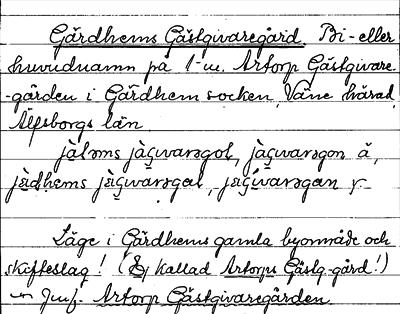 Gärdhems Gästgivaregård. Bi- eller
huvudnamn på 1-m. Artorp Gästgivare-
-gården i Gärdhem socken, Väne härad,
Älfsborgs län.
jàləms jàʂwarəgol, jàʂwarəgon ä,
jàdhems jàʂwarəgal, jàʂíwarəgan y-
Läge i Gärdhems gamla byområde och
skifteslag! (Ej kallad Artorps Gästg-gård!)
Jmf. Artorp Gästgivaregården.